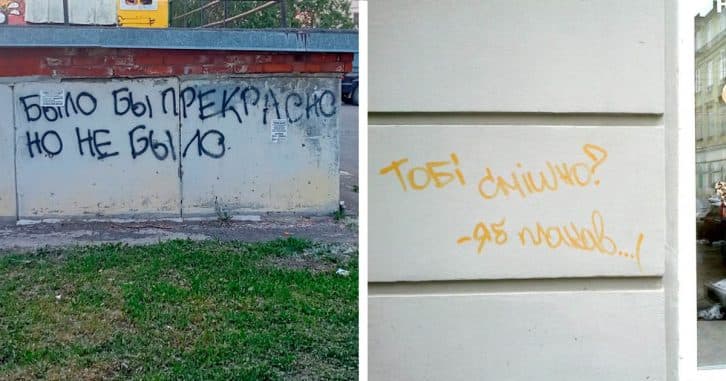 БЫЛО БЫ ПРЕКРАСНО
НО НЕ БЫЛО
Тобі смішно?
- яб плакав...